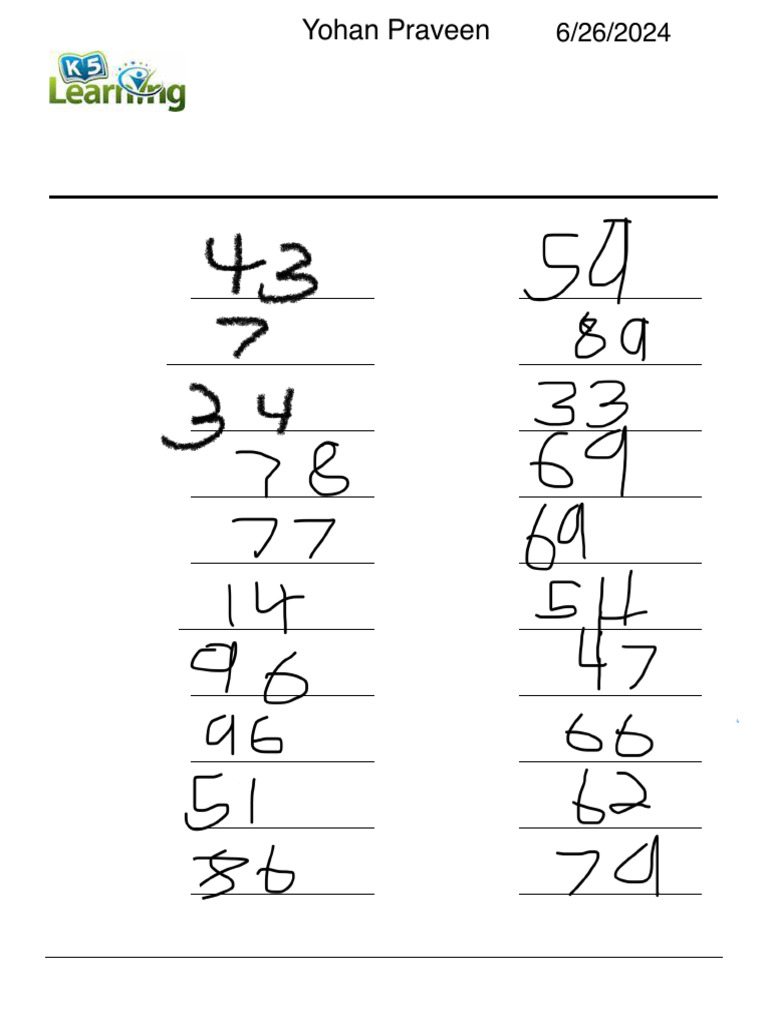 Yohan Praveen 6/26/2024
K5 Learning
43 59
7 89
34 33
78 69
77 69
14 54
96 47
96 66
51 62
36 79